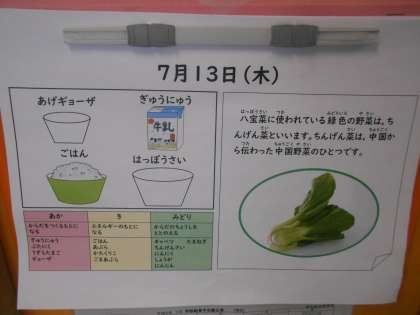 7月13日(木)
あげギョーザ
ぎゅうにゅう
牛乳
ごはん
はっぽうさい
あか
き
みどり
からだをつくるもとに
なる
エネルギーのもとに
なる
からだのちょうしを
ととのえる
ぎゅうにゅう
ぶたにく
うずらたまご
ギョーザ
ごはん
あぶら
かたくりこ
ごまあぶら
キャベツ たまねぎ
ちんげんさい
にんにく
しょうが
にんじん
八宝菜に使われている緑色の野菜は、ち
んげん菜といいます。ちんげん菜は、中国か
ら伝わった中国野菜のひとつです。